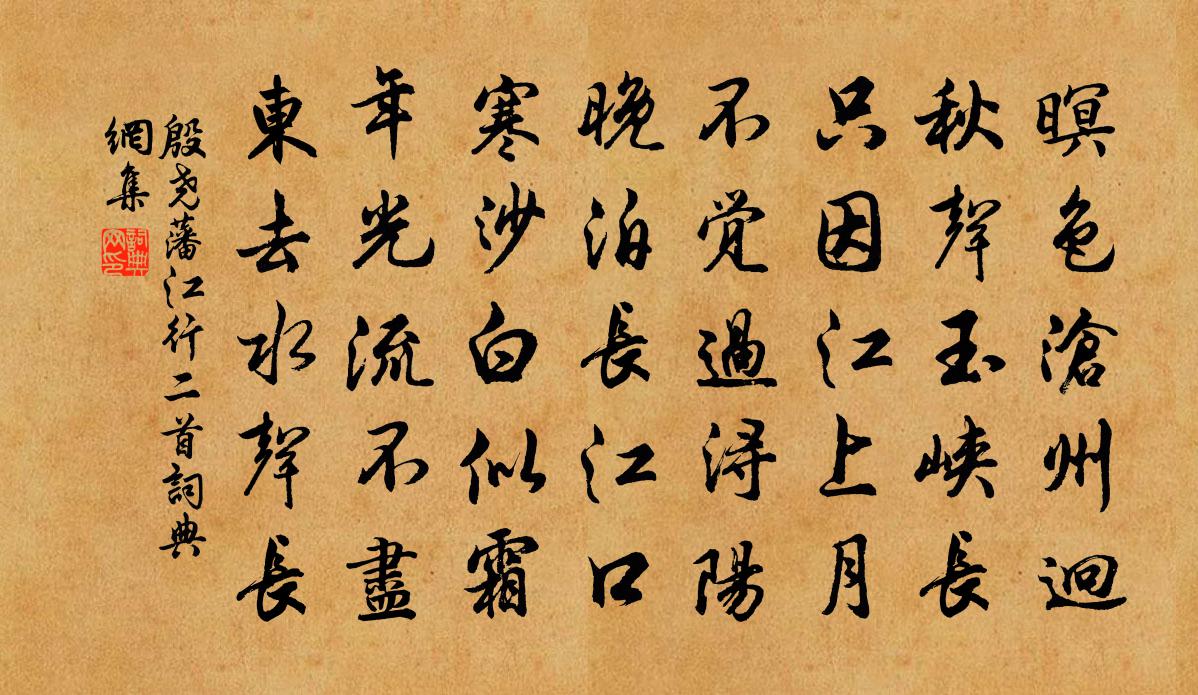 暝色滄州迥
秋聲玉峽長
只因江上月
不觉過浔陽
晚泊長江口
寒沙白似霜
年光流不盡
東去水聲長
殷尧藩江行二首詞典
網集
詞典
网印